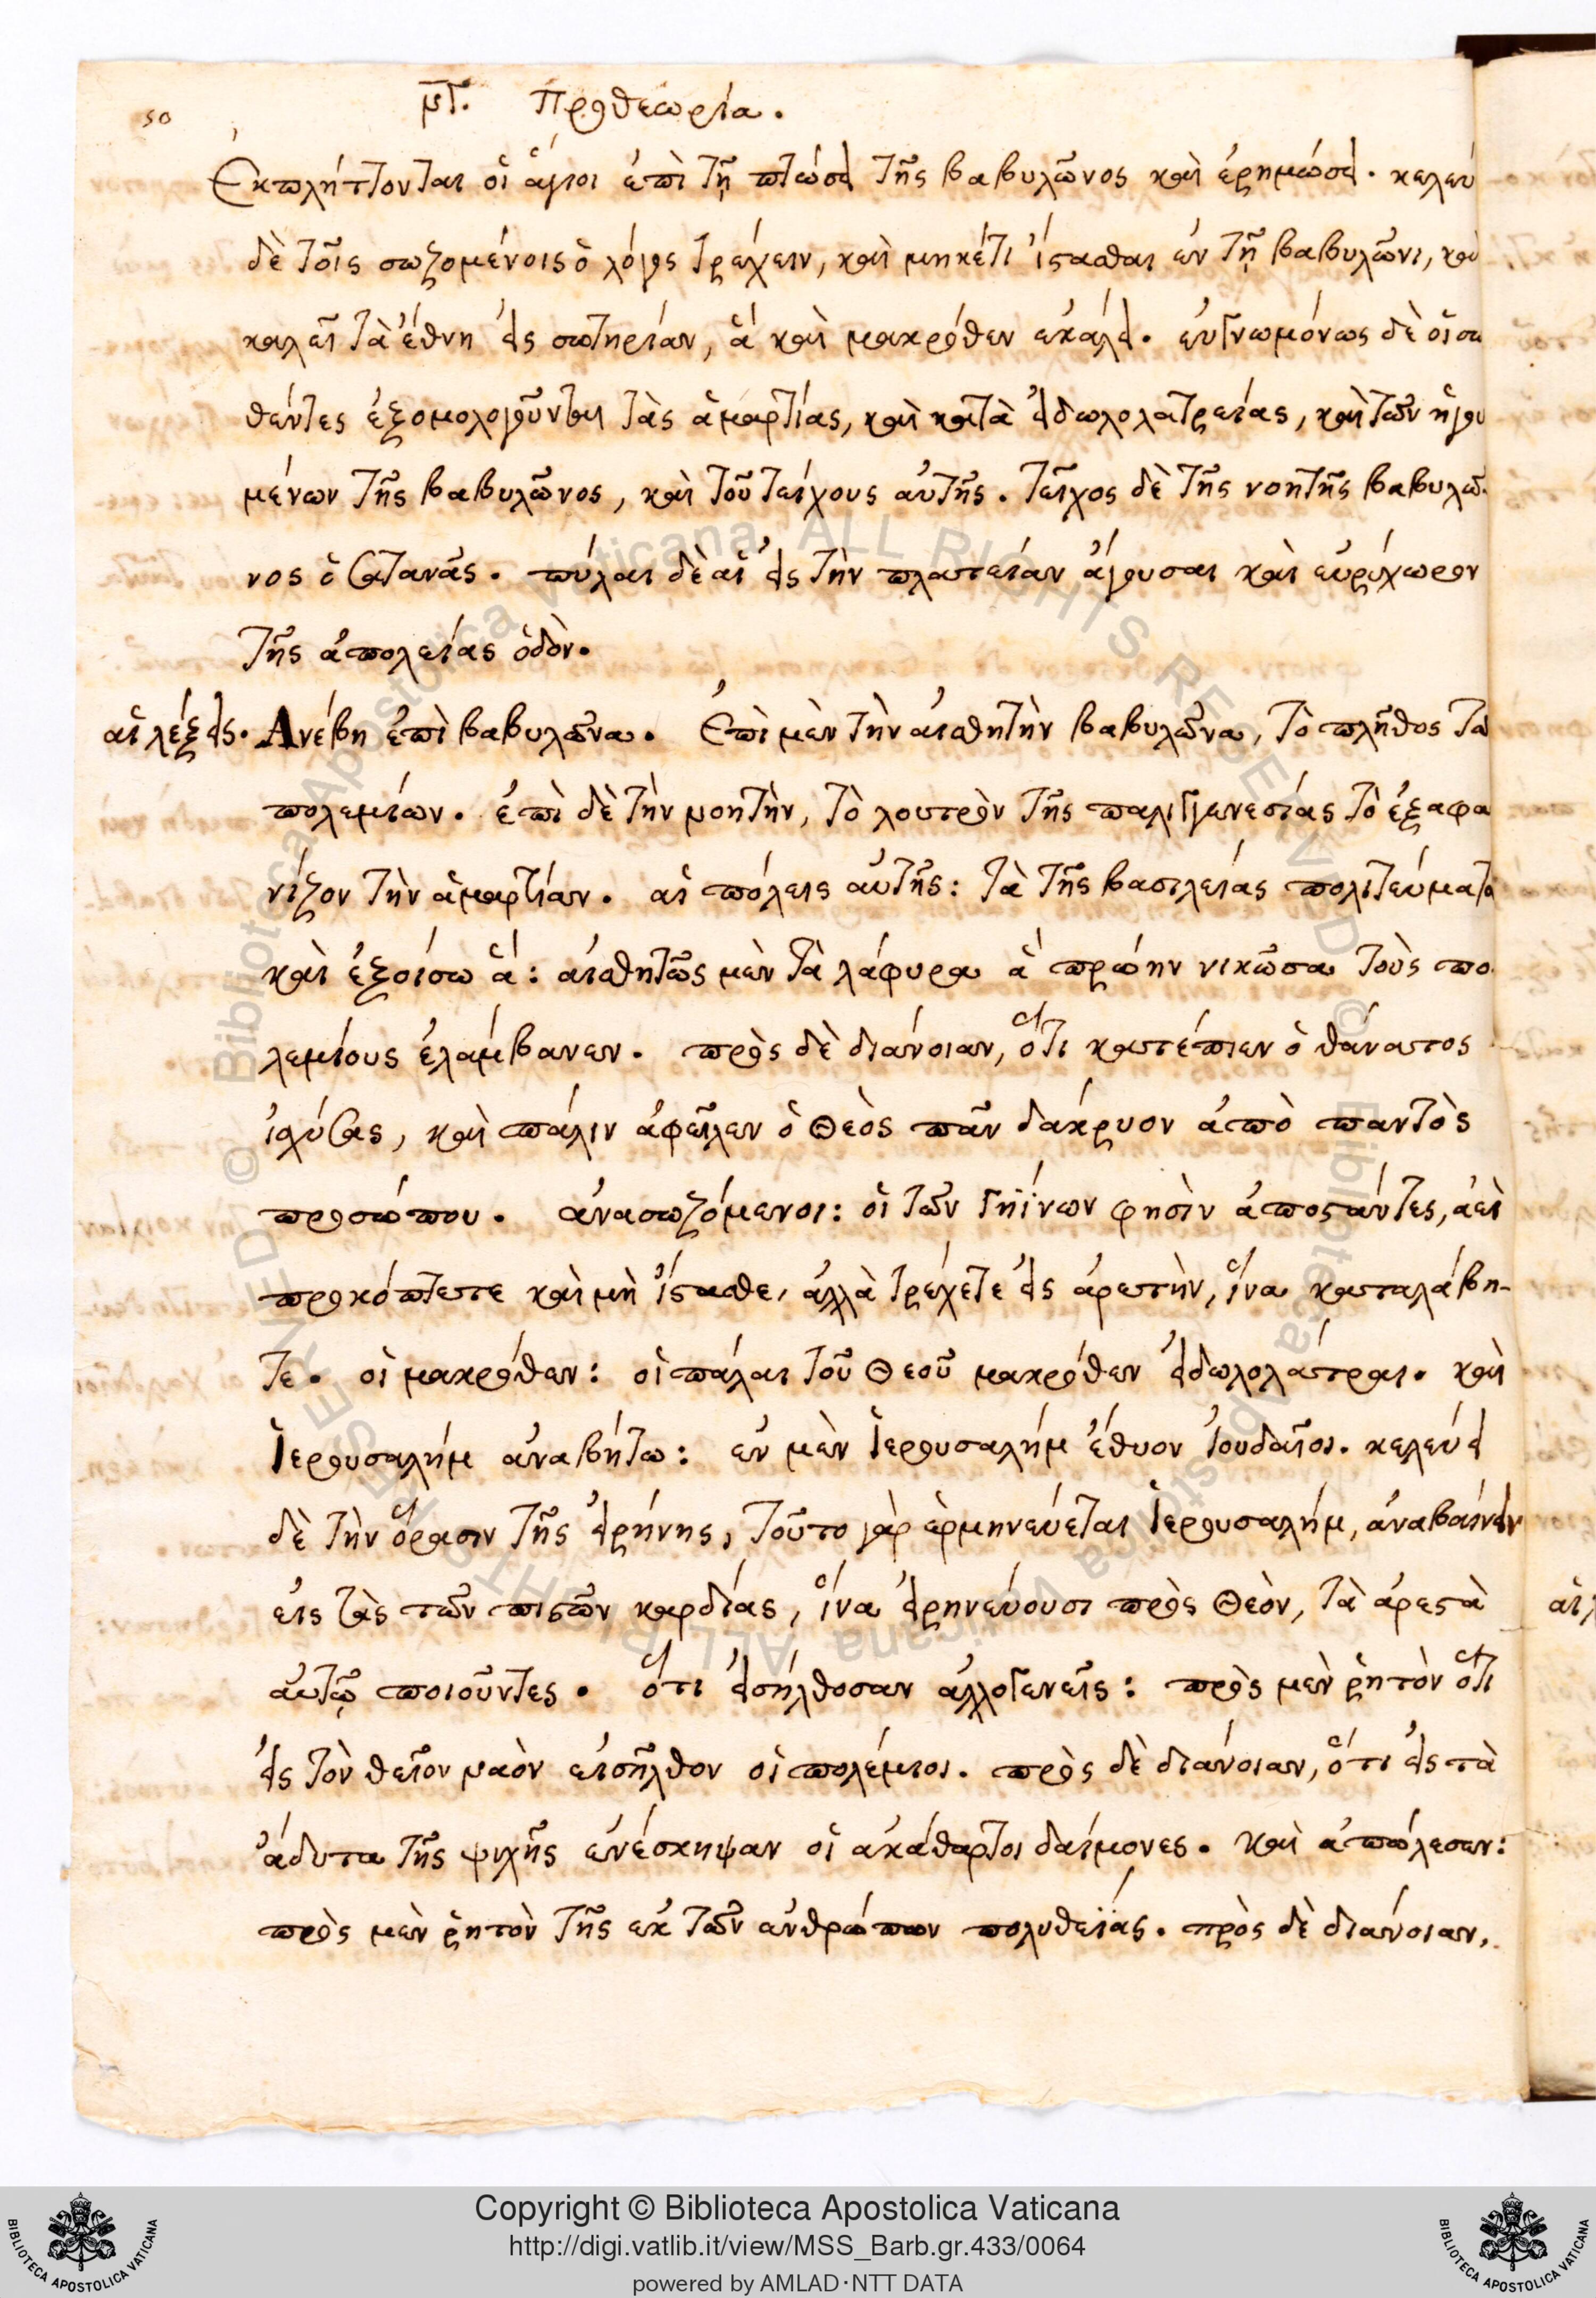 50
μγ. Προθεωρία.
Ἐκπλήττονται οἱ ἅγιοι ἐπὶ τῇ πτώσει τῆς βαβυλῶνος καὶ ἐρημώσει. κελεύ
δὲ τοῖς σωζομένοις ὁ λόγος τρέχειν, καὶ μηκέτι ἵστασθαι ἐν τῇ βαβυλῶνι, καὶ
καλεῖ τὰ ἔθνη εἰς σωτηρίαν, ἃ καὶ μακρόθεν ἐκάλει. εὐγνωμόνως δὲ οἱ σω
θέντες ἐξομολογοῦνται τὰς ἁμαρτίας, καὶ κατὰ εἰδωλολατρείας, καὶ τῶν ἡγου
μένων τῆς βαβυλῶνος, καὶ τοῦ τείχους αὐτῆς. τεῖχος δὲ τῆς νοητῆς βαβυλῶ
νος ὁ σατανᾶς. πύλαι δὲ αἱ εἰς τὴν πλατείαν ἄγουσαι καὶ εὐρύχωρον
τῆς ἀπολείας ὁδὸν.
αἱ λέξεις. Ἀνέβη ἐπὶ βαβυλῶνα. Ἐπὶ μὲν τὴν αἰσθητὴν βαβυλῶνα, τὸ πλῆθος τῶ
πολεμίων. ἐπὶ δὲ τὴν νοητὴν, τὸ λουτρὸν τῆς παλιγγενεσίας τὸ ἐξαφα
νίζον τὴν ἁμαρτίαν. αἱ πόλεις αὐτῆς: τὰ τῆς βασιλείας πολιτεύματα
καὶ ἐξοίσω ἃ: αἰσθητῶς μὲν τὰ λάφυρα ἃ πρώην νικῶσα τοὺς πο
λεμίους ἐλάμβανεν. πρὸς δὲ διάνοιαν, ὅτι κατέπιεν ὁ θάνατος
ἰσχύσας, καὶ πάλιν ἀφεῖλεν ὁ Θεὸς πᾶν δάκρυον ἀπὸ παντὸς
προσώπου. ἀνασωζόμενοι: οἱ τῶν γηΐνων φησὶν ἀποστάντες, ἀεὶ
προκόπτετε καὶ μὴ ἵστασθε, ἀλλὰ τρέχετε εἰς ἀρετὴν, ἵνα καταλάβη-
τε. οἱ μακρόθεν: οἱ πάλαι τοῦ Θεοῦ μακρόθεν εἰδωλολάτραι. καὶ
Ἱερουσαλήμ ἀναβήτω: ἐν μὲν Ἱερουσαλήμ ἔθυον Ἰουδαῖοι. κελεύει
δὲ τὴν ὅρασιν τῆς εἰρήνης, τοῦτο γὰρ ἑρμηνεύεται Ἱερουσαλήμ, ἀναβαίνειν
εἰς τὰς τῶν πιστῶν καρδίας, ἵνα εἰρηνεύουσι πρὸς Θεὸν, τὰ ἀρεστὰ
αὐτῷ ποιοῦντες. ὅτι εἰσήλθοσαν ἀλλογενεῖς: πρὸς μὲν ῥητὸν ὅτι
εἰς τὸν θεῖον ναὸν εἰσῆλθον οἱ πολέμιοι. πρὸς δὲ διάνοιαν, ὅτι εἰς τὰ
ἄδυτα τῆς ψυχῆς ἐνέσκηψαν οἱ ἀκάθαρτοι δαίμονες. καὶ ἀπώλεσεν:
πρὸς μὲν ῥητὸν τῆς ἐκ τῶν ἀνθρώπων πολυθεΐας. πρὸς δὲ διάνοιαν,
Copyright © Biblioteca Apostolica Vaticana
http://digi.vatlib.it/view/MSS_Barb.gr.433/0064
powered by AMLAD·NTT DATA